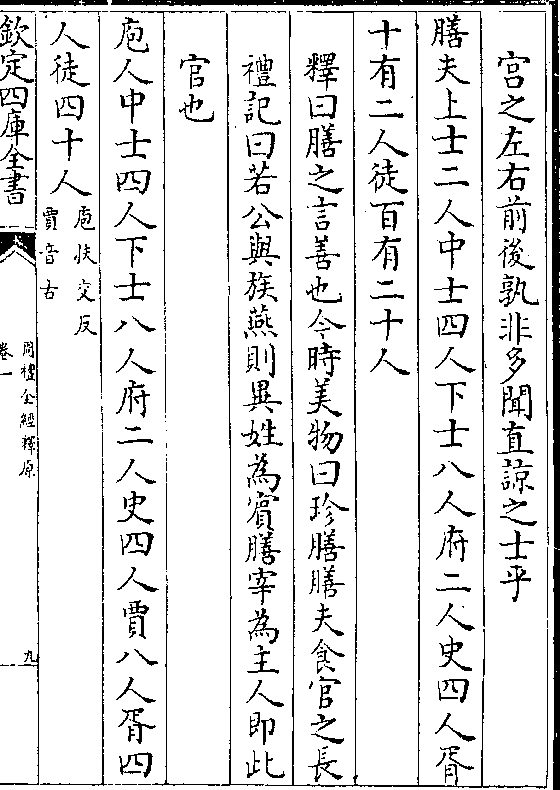 宫之左右前後孰非多聞直諒之士乎
膳夫上士二人中士四人下士八人府二人史四人胥
十有二人徒百有二十人
釋曰膳之言善也今時美物曰珍膳膳夫食官之長
禮記曰若公與族燕則異姓為賔膳宰為主人即此
官也
庖人中士四人下士八人府二人史四人賈八人胥四
人徒四十人
庖恱交反
賈音古
欽定四庫全書
周禮全經釋原
卷一
九